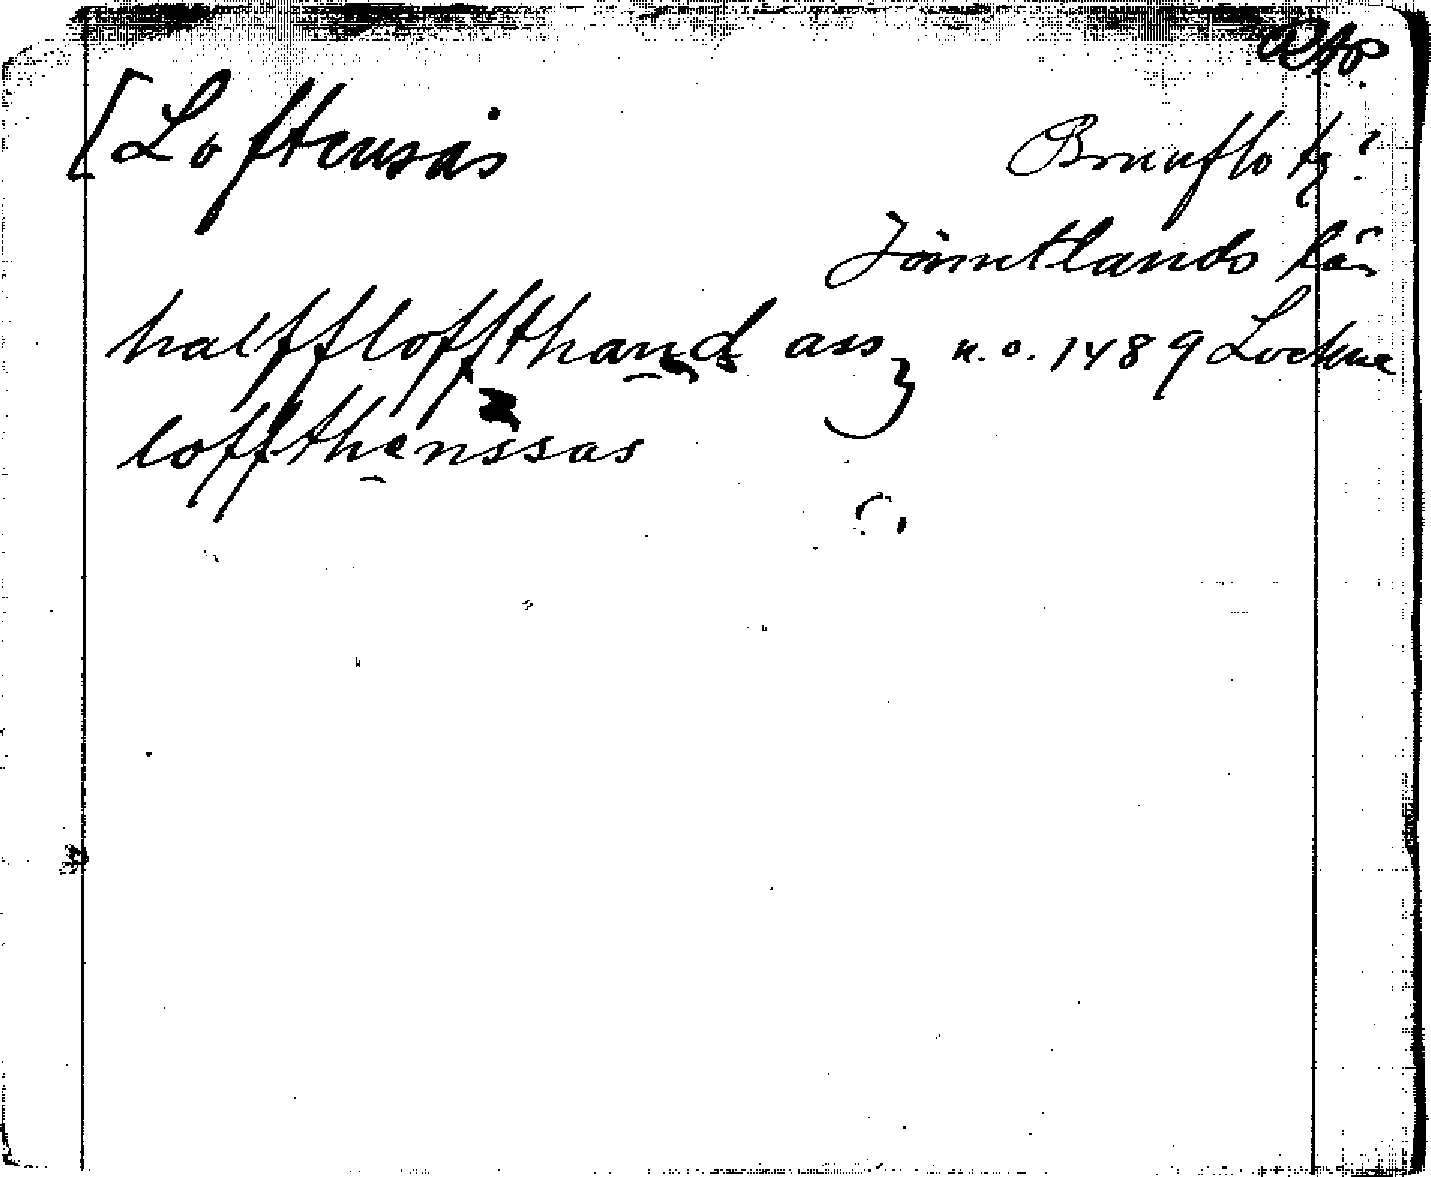 [Loftensås
Brunflo tg?
Jämtlands län
halffloffthand ass, n.o. 1489 Lockne
loffthenssas